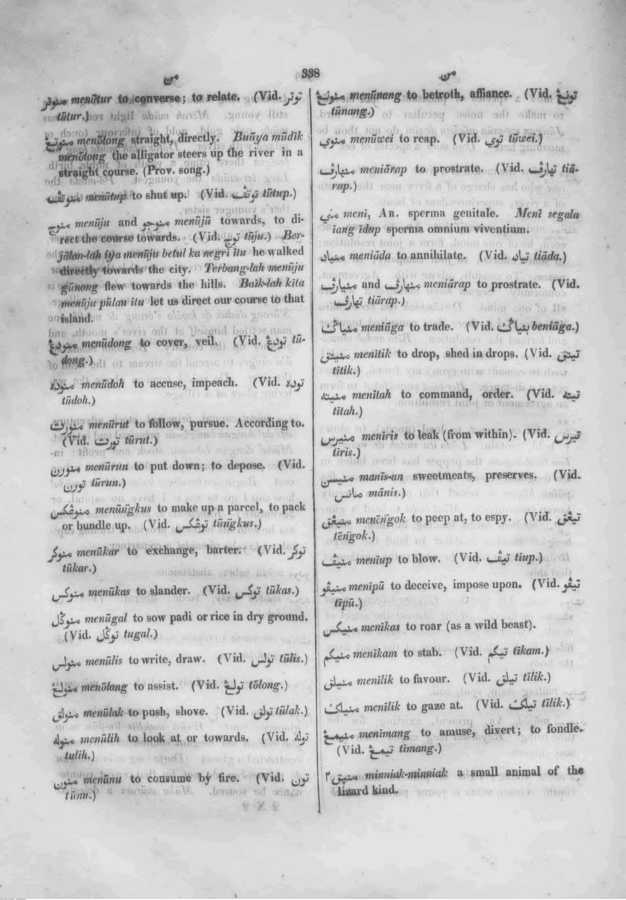 من
338
من
منوتر menūtur to converse; to relate. (Vid. توتر
tūtur.)
منوتڠ menūtong straight, directly. Buāya mūdik
menūtong the alligator steers up the river in a
straight course. (Prov. song.)
menūtup to shut up. (Vid. توتڤ tūtup.)
منوج menūju and منوجو menūjū towards, to di-
rect the course towards. (Vid. توج tūju.) Ber-
jālan-lah iya menūju betul ka negri itu he walked
directly towards the city. Terbang-lah menūju
gūnong flew towards the hills. Baïk-lah kita
menūju pūlau itu let us direct our course to that
island.
منودڠ menūdong to cover, veil. (Vid. تودڠ tū-
dong.)
منوده menūdoh to accuse, impeach. (Vid. توده
tūdoh.)
منورت menūrut to follow, pursue. According to.
(Vid. تورت tūrut.)
منورن menūrun to put down; to depose. (Vid.
تورن tūrun.)
منوڠكس menūngkus to make up a parcel, to pack
or bundle up. (Vid. توڠكس tūngkus.)
منوكر menūkar to exchange, barter. (Vid. توكر
tūkar.)
منوكس menūkas to slander. (Vid. توكس tūkas.)
منوݢل menūgal to sow padi or rice in dry ground.
(Vid. توݢل tugal.)
منولس menūlis to write, draw. (Vid. تولس tūlis.)
منولڠ menōlang to assist. (Vid. تولڠ tōlong.)
منولق menūlak to push, shove. (Vid. تولق tūlak.)
منوله menūlih to look at or towards. (Vid. توله
tulih.)
منونن menūnu to consume by fire. (Vid. تونن
tūnu.)
منونڠ menūnang to betroth, affiance. (Vid. تونڠ
tūnang.)
منوي menūwei to reap. (Vid. توي tūwei.)
منيارڤ meniārap to prostrate. (Vid. تيارڤ tiā-
rap.)
مني meni, An. sperma genitale. Menī segala
iang īdup sperma omnium viventium.
منياد meniāda to annihilate. (Vid. تياد tiāda.)
منيارڤ and منهيارڤ meniārap to prostrate. (Vid.
تيارڤ tiārap.)
منياݢ meniāga to trade. (Vid. بنياݢ beniāga.)
منيتق menītik to drop, shed in drops. (Vid. تيتق
tītik.)
منيته menītah to command, order. (Vid. تيته
tītah.)
منيرس menīris to leak (from within). (Vid. تيرس
tīris.)
منيسن manīs-an sweetmeats, preserves. (Vid.
مانس mānis.)
منيڠق menēngok to peep at, to espy. (Vid. تيڠق
tēngok.)
منيڤ menīup to blow. (Vid. تيڤ tīup.)
منيڤو menīpū to deceive, impose upon. (Vid. تيڤو
tīpū.)
منيكس menīkas to roar (as a wild beast).
منيكم menīkam to stab. (Vid. تيكم tīkam.)
منيلق menīlik to favour. (Vid. تيلق tīlik.)
منيلك menīlik to gaze at. (Vid. تيلك tīlik.)
منيمڠ menīmang to amuse, divert; to fondle.
(Vid. تيمڠ timang.)
منيق٢ minniak-minniak a small animal of the
lizard kind.